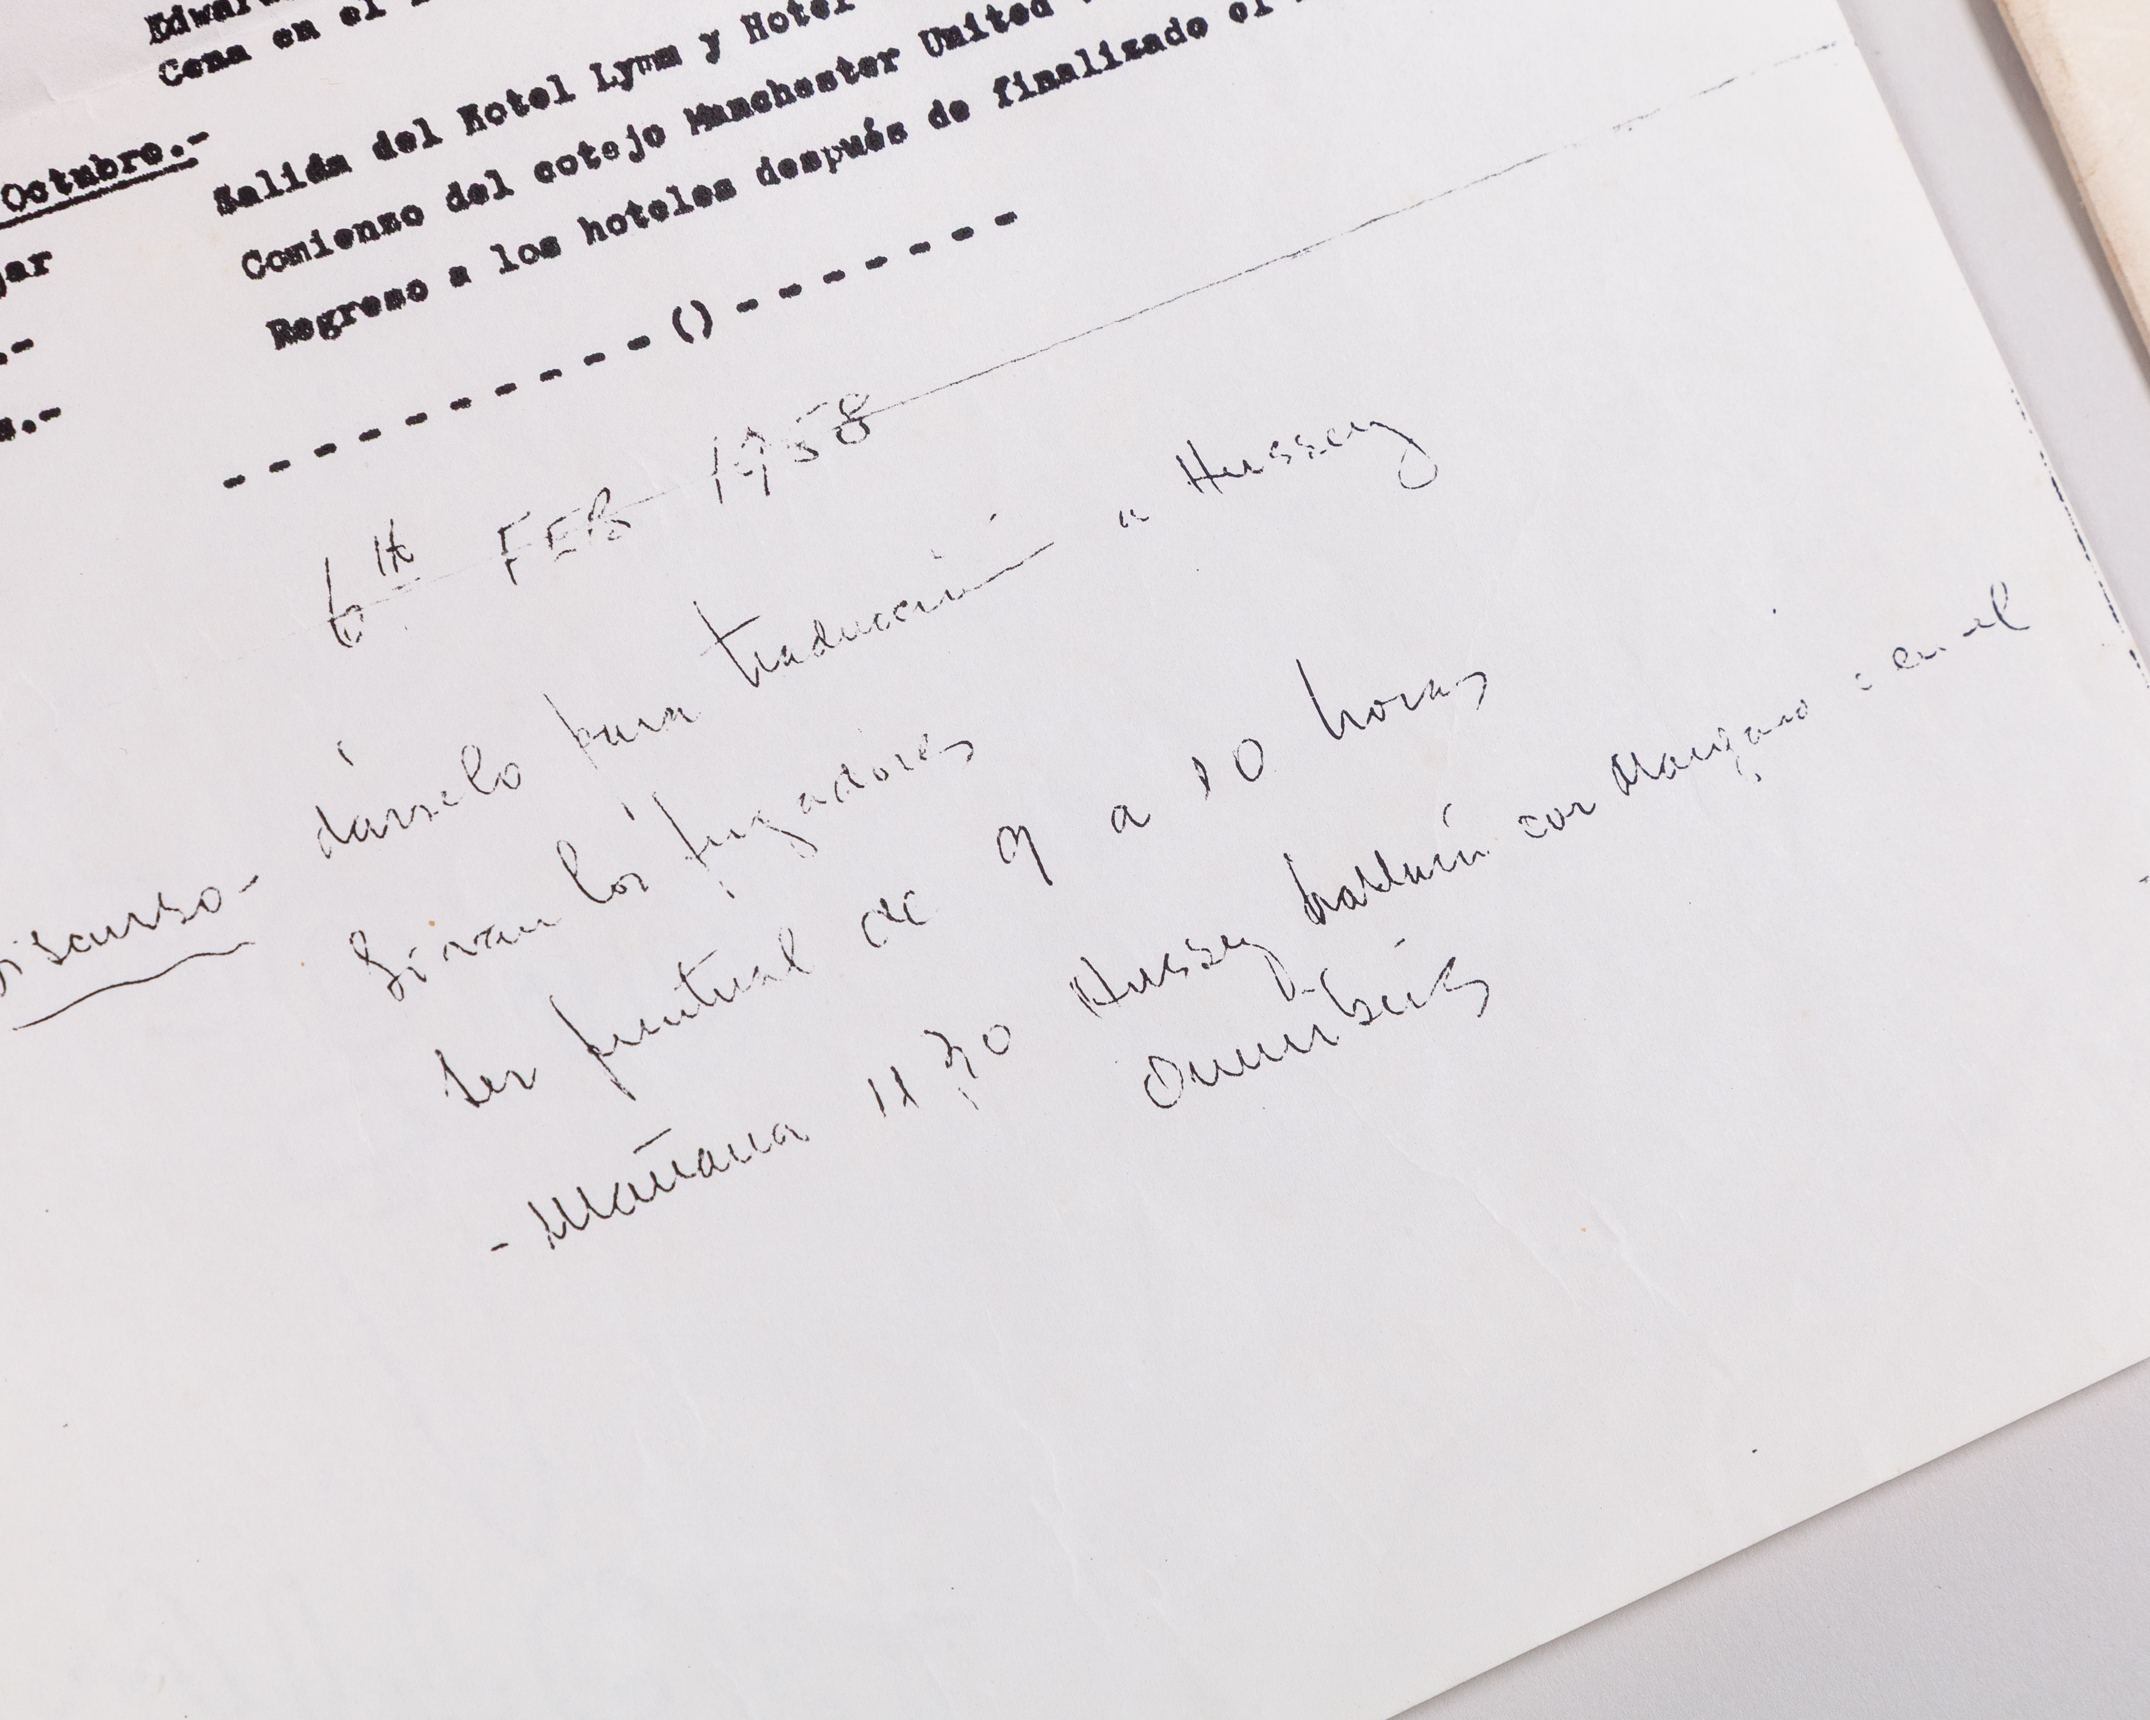 Cena en el
Octubre.-
Salida del Hotel Lymm y Hotel
Comienzo del cotejo Manchester United
Regreso a los hoteles después de finalizado el
----------()-------
6TH FEB 1958
Discurso- dárselo para traducción a Hussey
Si van los jugadores
Ser puntual de 9 a 10 horas
- Mañana 11,30 Hussey con en el
Omnibús